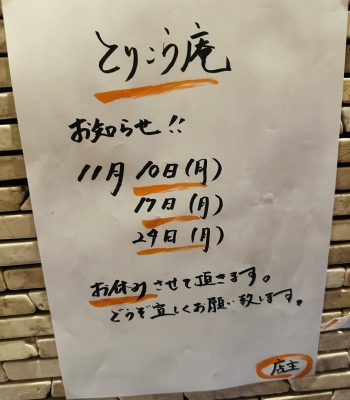 とりこう庵
お知らせ!!
11月 10日(月)
17日(月)
24日(月)
お休みさせて頂きます。
どうぞ宜しくお願い致します。
店主